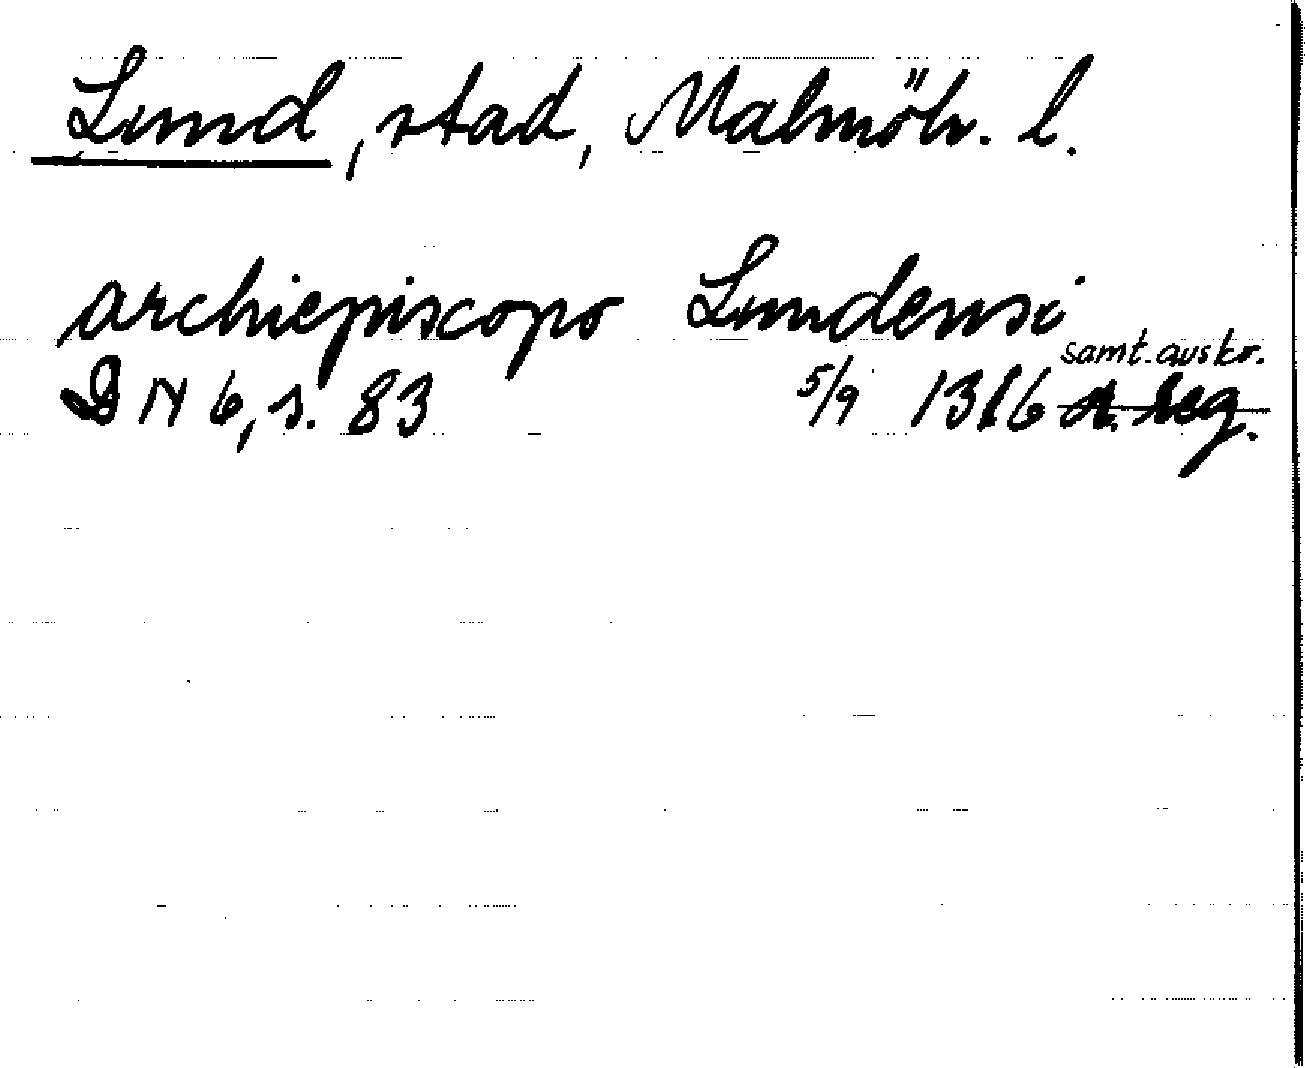 Lund, stad, Malmöh. l.
archiepiscopo Lundensi
samt. avskr.
DN 6, s. 83 5/9 1316 A. Reg.